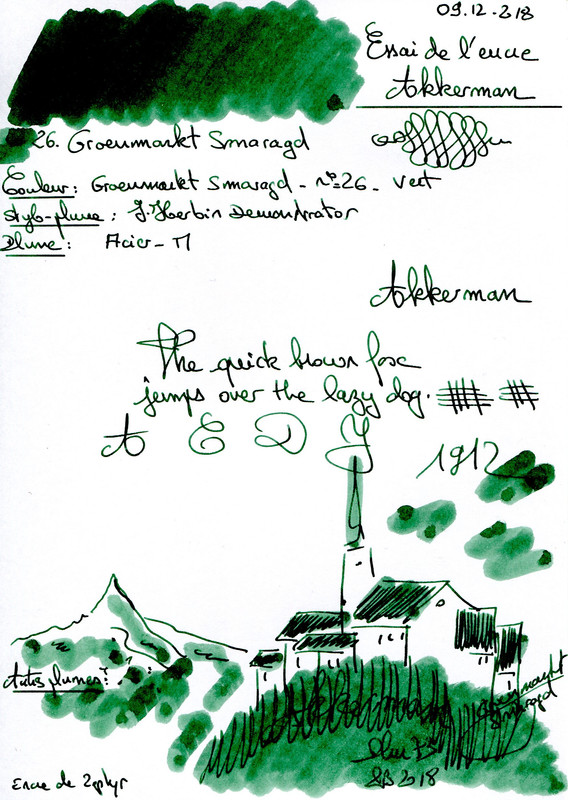 09.12.2018
Essai de l'encre
Akkerman
26. Groenmarkt Smaragd
Couleur : Groenmarkt Smaragd - n°26 - vert
Stylo-plume : J. Herbin Demonstrator
Plume : Acier - M
Akkerman
The quick brown fox
jumps over the lazy dog.
A E D J
1912
Autres plumes ?
Akkerman
Groenmarkt
Smaragd
2018
Encre de Zephyr